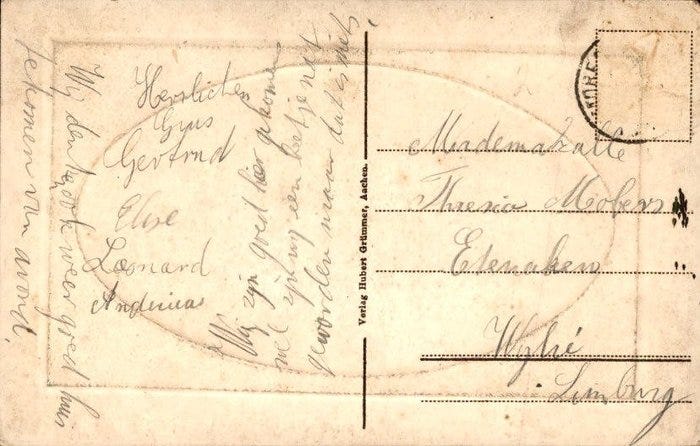 Herzlichen
Grus
Gertrud
Elise
Leonard
Andreas
Wij zijn goed hier gekomen
wel zijn wij een beetje nat
geworden maar dat is niets
Wij denken ook weer goed huis
te komen van avond.
Verlag Hubert Grümmer, Aachen.
Mademaizalle
Thresia Mobers
Etenaken
Wylré
Limburg